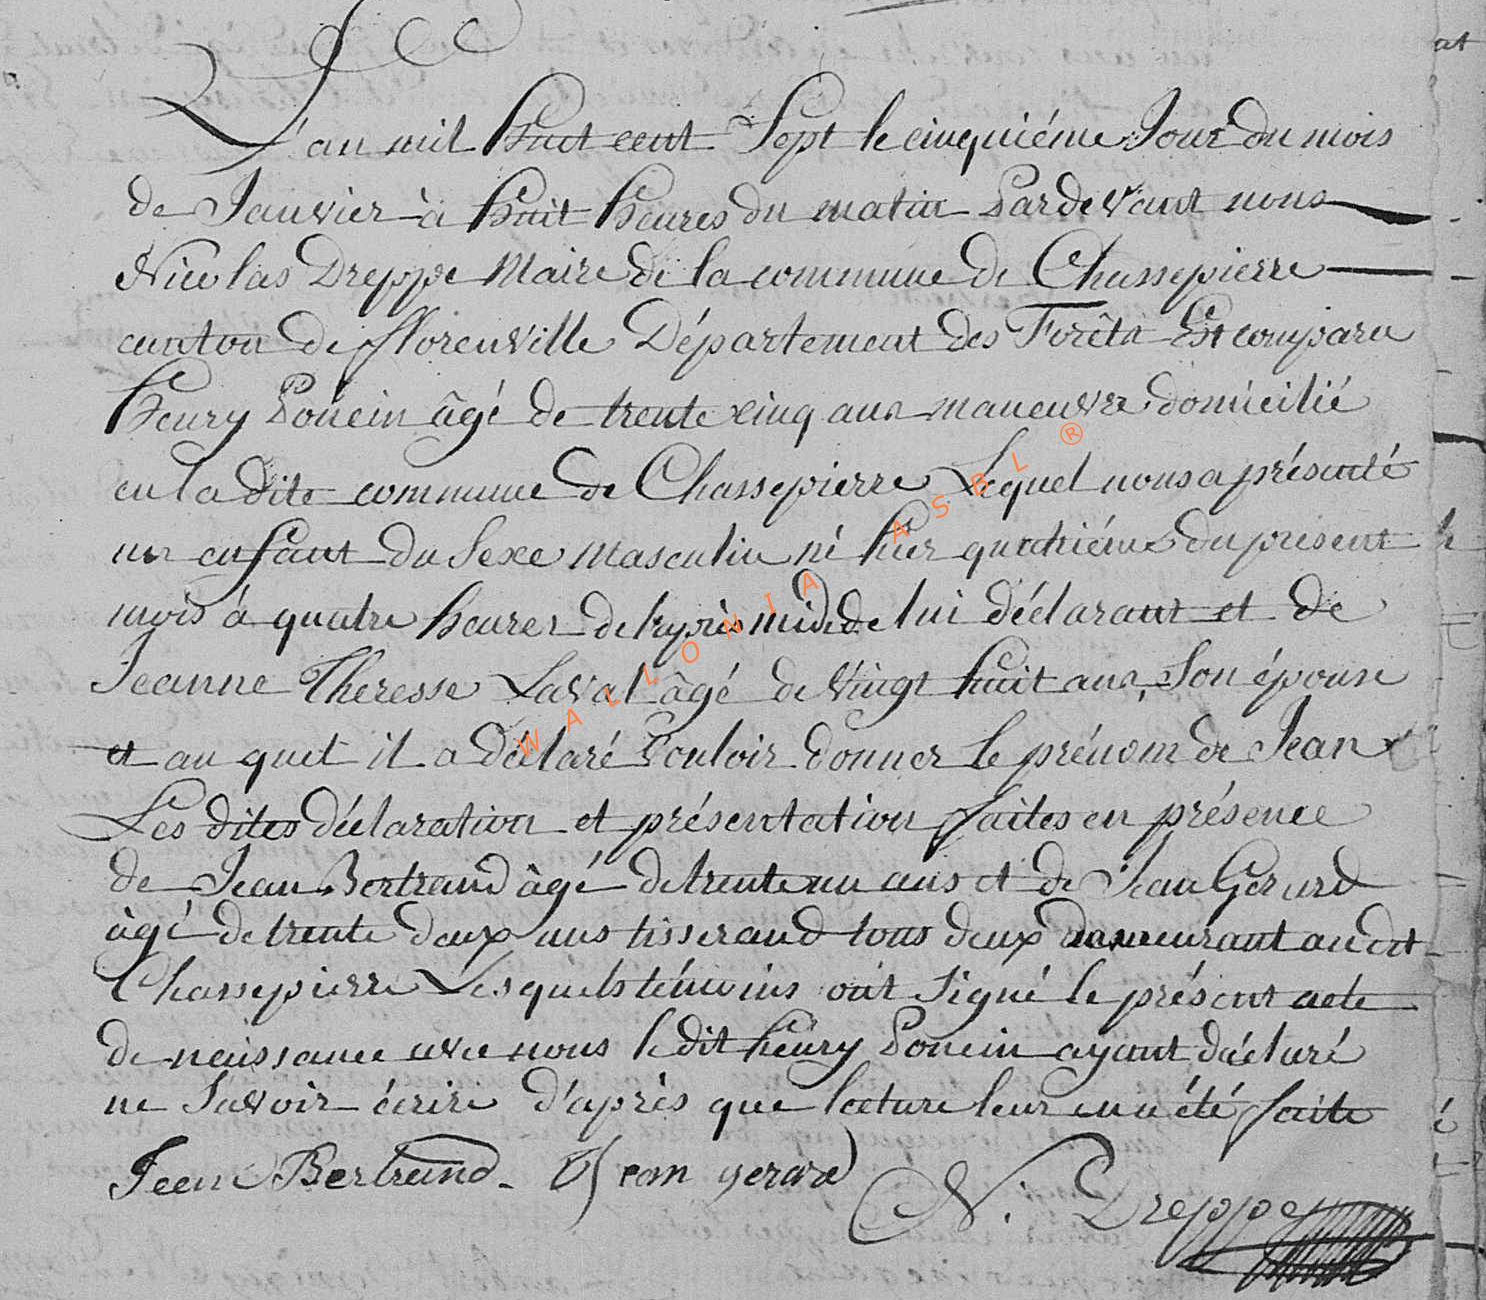 L'an mil huit cent Sept le cinquiéme Jour du mois
de Janvier à huit heures du matin Pardevant nous
Nicolas Dreppe Maire de la commune de Chassepierre
canton de fflorenville Département des Forêts Est comparu
henry Poncin âgé de trente cinq ans maneuvre domicilié
en la dite commune de Chassepierre Lequel nous a présenté
un enfant du Sexe Masculin né hier quatriéme du présent
mois à quatre heures de l'après midi de lui déclarant et de
Jeanne Theresse Laval âgé de Vingt huit ans, Son épouse
et au quel il a déclaré Vouloir donner le prénom de Jean
Les dites déclaration et présentation faites en présence
de Jean Bertrand âgé de trente un ans et de Jean Gerard
âgé de trente deux ans tisserand tous deux demeurant au dit
Chassepierre Lesquels témoins ont signé le présent acte
de naissance avec nous le dit henry Poncin ayant déclaré
ne Savoir écrire d'après que lecture leur en a été faite
Jean Bertrand. Jean gerard
N. Dreppe
WALLONIA ASBL ®